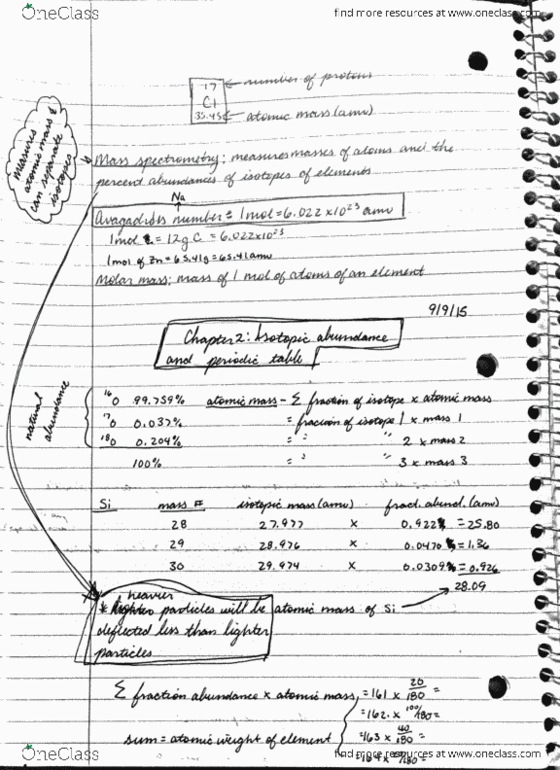 OneClass
find more resources at www.oneclass.com
17 ← number of protons
Cl
35.45 ← atomic mass (amu)
measures
atomic mass &
can separate
isotopes
Mass spectrometry: measures masses of atoms and the
percent abundances of isotopes of elements
Na
Avagadros number = 1mol = 6.022x10²³ amu
1mol = 12g C = 6.022x10²³
1mol of Zn = 65.41g = 65.41amu
Molar mass: mass of 1 mol of atoms of an element
9/9/15
Chapter 2: Isotopic abundance
and periodic table
natural
abundance
¹⁶O 99.759% atomic mass - Σ fraction of isotope x atomic mass
¹⁷O 0.037% = fraction of isotope 1 x mass 1
¹⁸O 0.204% = " " 2 x mass 2
100% = " " 3 x mass 3
Si mass # isotopic mass (amu) fract. abund. (amu)
28 27.977 x 0.922 = 25.80
29 28.976 x 0.0470 = 1.36
30 29.974 x 0.0309 = 0.926
28.09
heavier
* particles will be atomic mass of Si
deflected less than lighter
particles
Σ fraction abundance x atomic mass = 161 x 20/180 =
= 162. x 100/180 =
sum = atomic weight of element = 163 x 40/180 =
= 164 x /180 =
OneClass
find more resources at www.oneclass.com